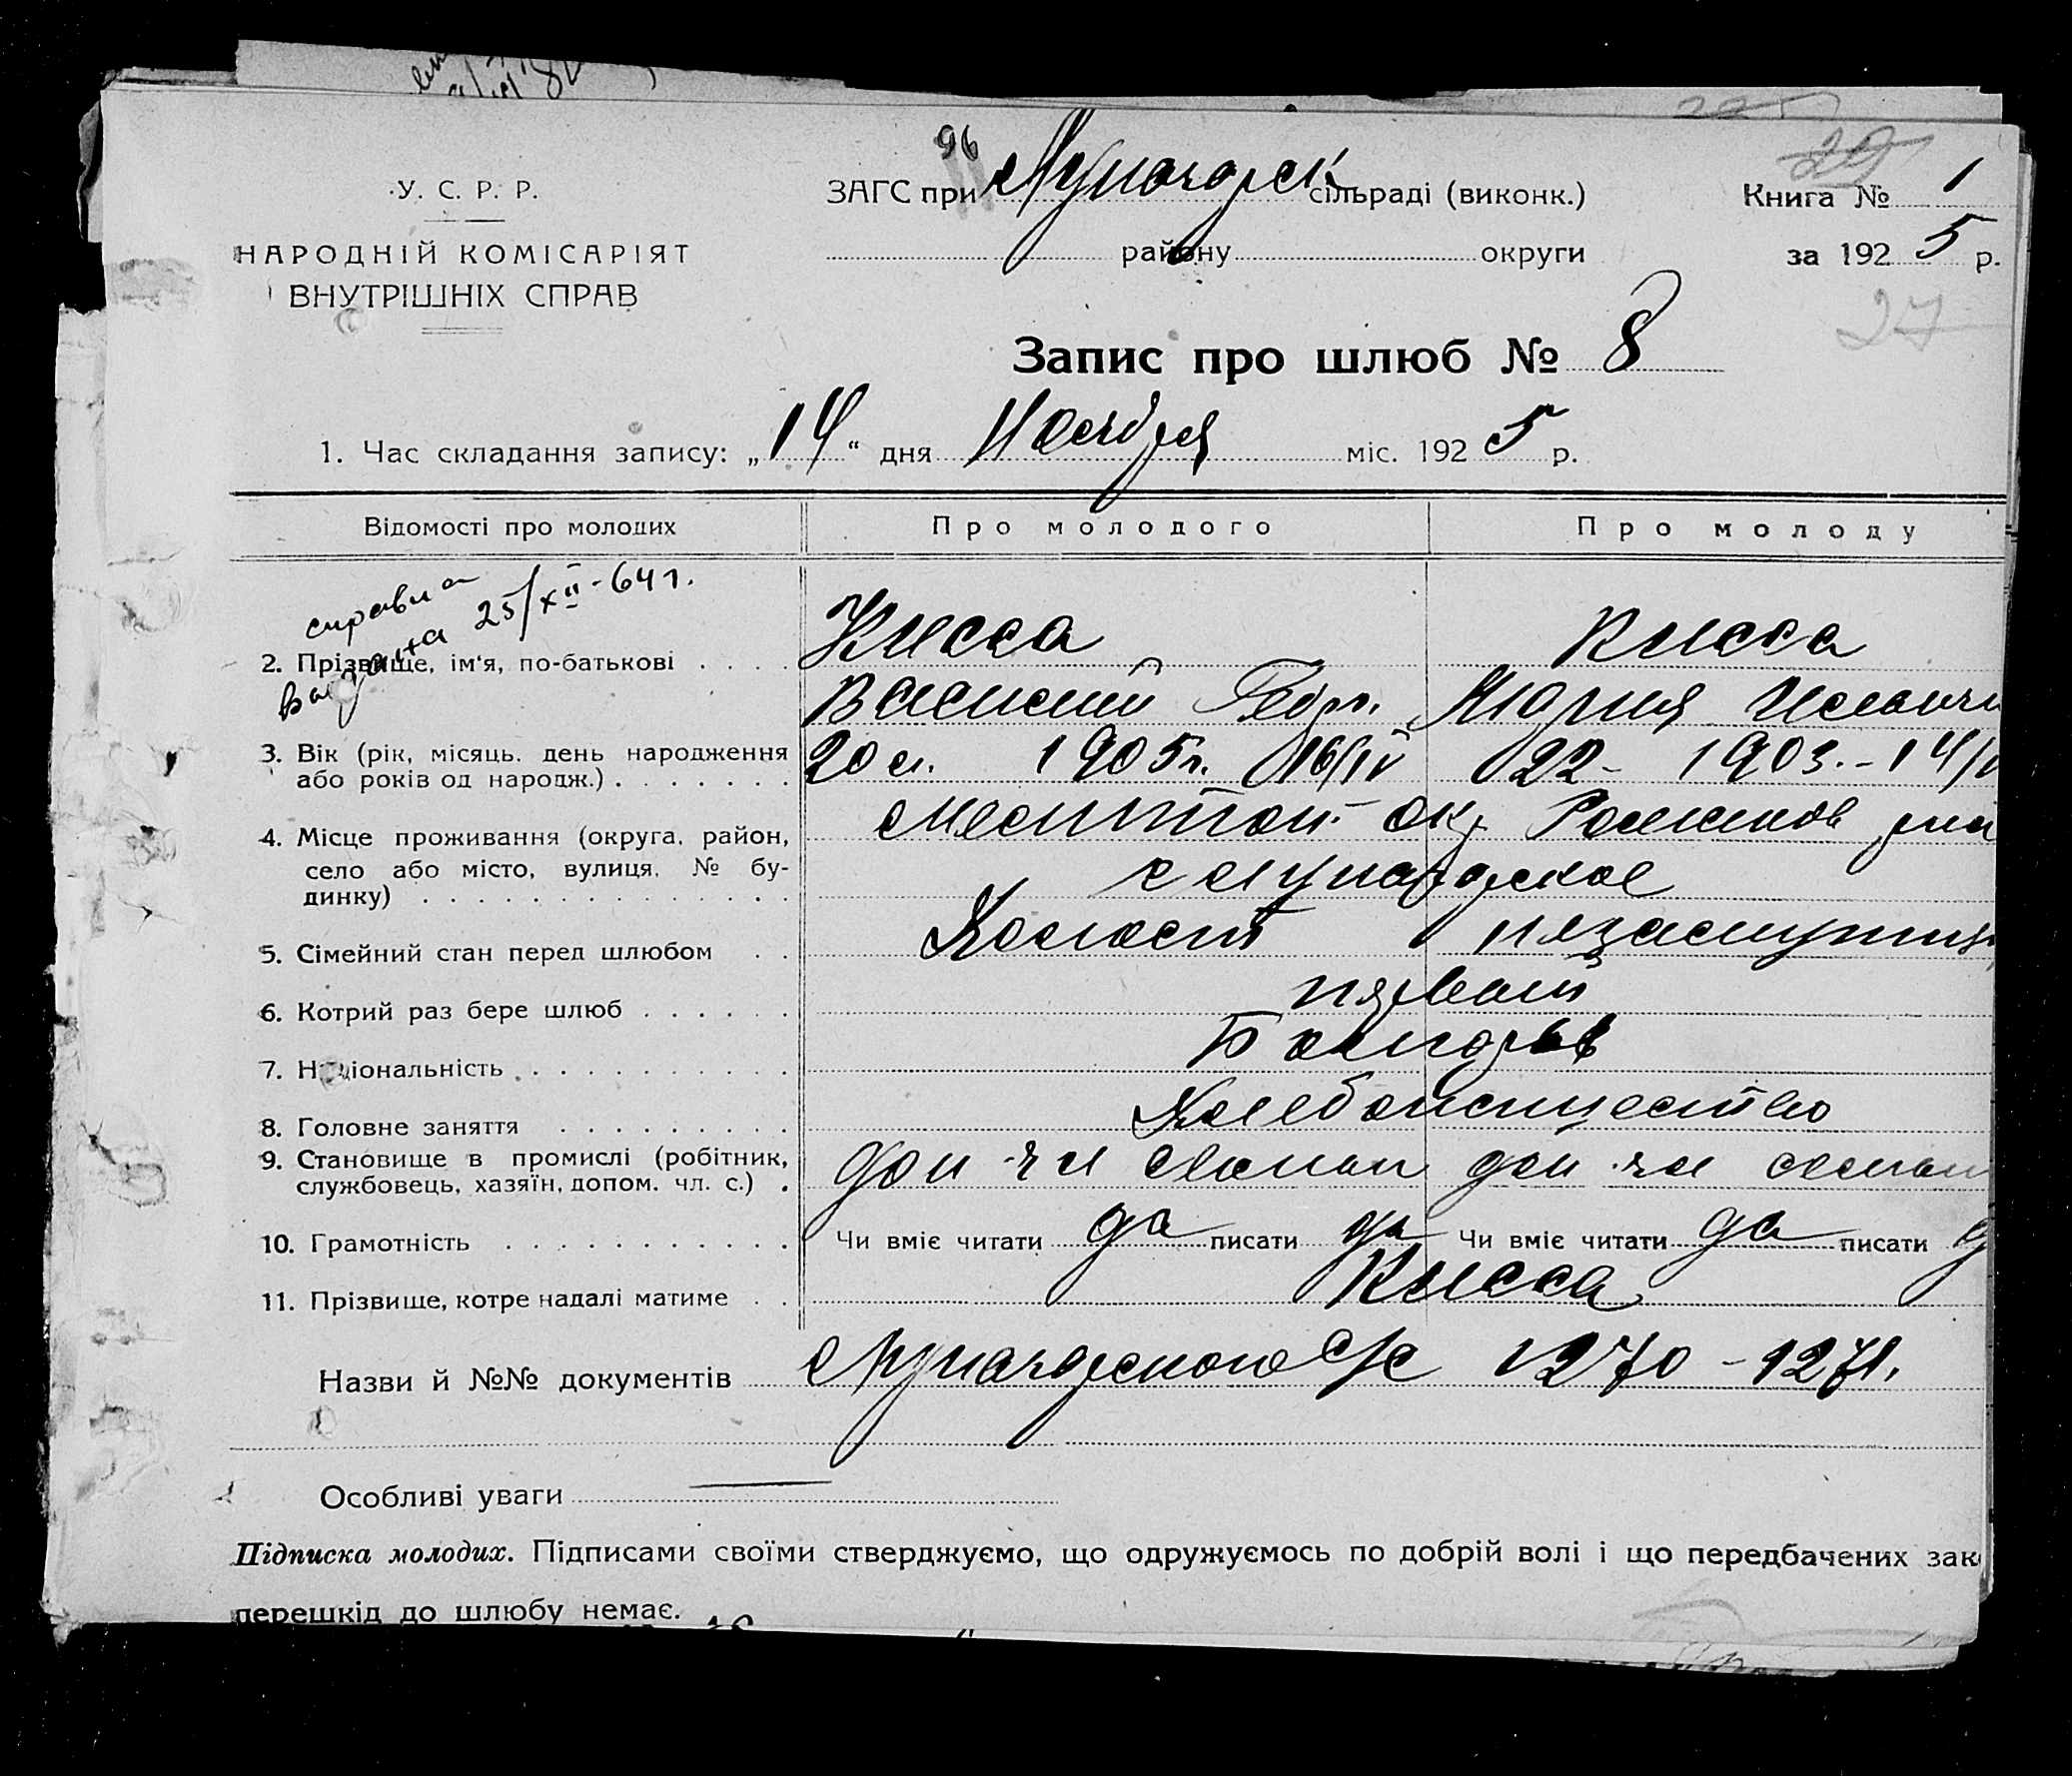 96
У. С. Р. Р.
НАРОДНІЙ КОМІСАРІЯТ
ВНУТРІШНІХ СПРАВ
ЗАГС при Луначарск сільраді (виконк.)
району округи
Книга № 1
за 1925 р.
27
Запис про шлюб № 8
1. Час складання запису: „14“ дня Ноября міс. 1925 р.
Відомості про молодих Про молодого Про молоду
справка
выдана 25/XII-64 г.
2. Прізвище, ім'я, по-батькові Кисса Кисса
Василий Геор. Мария
3. Вік (рік, місяць, день народження 20 л. 1905 г. 16/IV 22 - 1903. - 14/
або років од народж.)
4. Місце проживання (округа, район, Мелитоп. окр
село або місто, вулиця, № бу-
динку) с Луначарское
5. Сімейний стан перед шлюбом Холост
6. Котрий раз бере шлюб первый
7. Національність Болгары
8. Головне заняття Хлебопашество
9. Становище в промислі (робітник,
службовець, хазяїн, допом. чл. с.)
10. Грамотність Чи вміє читати да писати да Чи вміє читати да писати д
11. Прізвище, котре надалі матиме Кисса
Назви й №№ документів Луначарского с/с 1270 - 1271.
Особливі уваги
Підписка молодих. Підписами своїми стверджуємо, що одружуємось по добрій волі і що передбачених зак
перешкід до шлюбу немає.